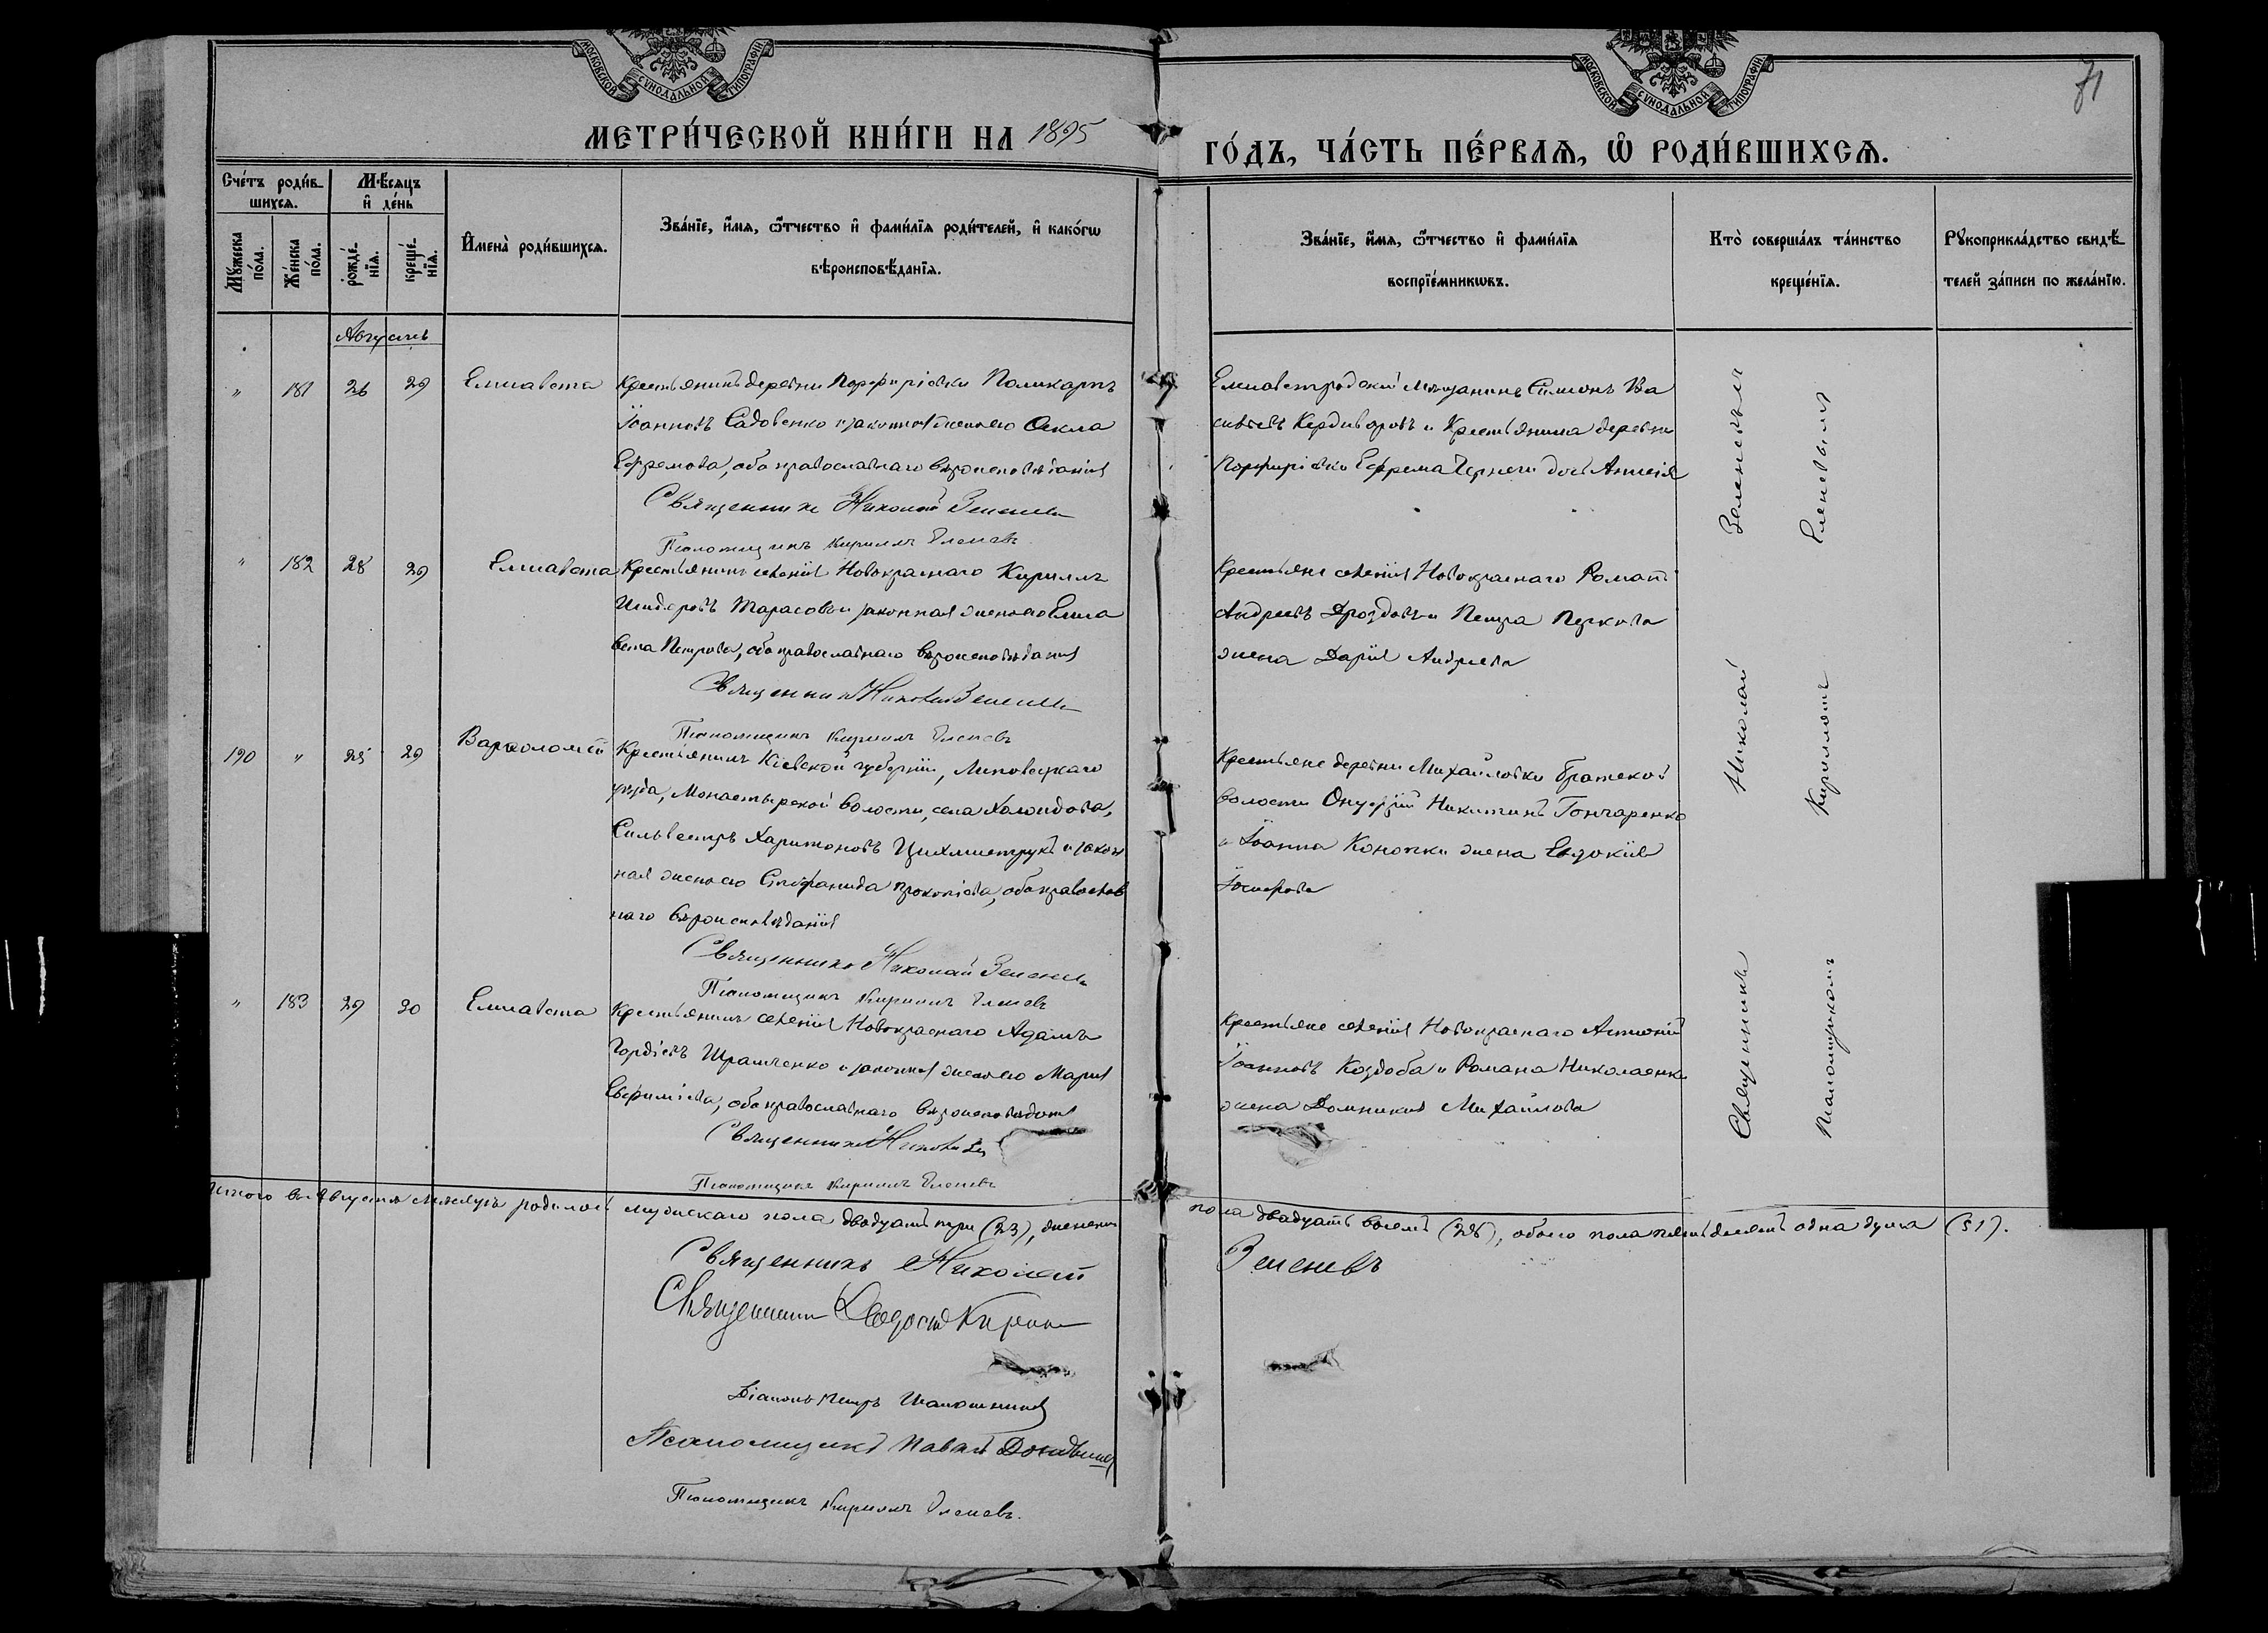 МОСКОВСКОЙ СѴНОДАЛЬНОЙ ТИПОГРАФІИ
МОСКОВСКОЙ СѴНОДАЛЬНОЙ ТИПОГРАФІИ
71
МЕТРИ́ЧЕСКОЙ КНИ́ГИ НА 1895
ГО́ДЪ, ЧА́СТЬ ПЕ́РВАѦ, Ѡ РОДИ́ВШИХСѦ.
Сче́тъ роди́в-
шихсѧ.
Мѣ́сѧцъ
и҆ де́нь
Мꙋ́жеска
по́ла.
Же́нска
по́ла.
рожде́-
нїѧ.
креще́-
нїѧ.
И҆мена̀ роди́вшихсѧ.
Зва́нїе, и҆́мѧ, ѻ҆́тчество и҆ фами́лїѧ роди́телей, и҆ како́гѡ
вѣроисповѣ́данїѧ.
Зва́нїе, и҆́мѧ, ѻ҆́тчество и҆ фами́лїѧ
воспрїе́мникѡвъ.
Кто̀ соверша́лъ та́инство
креще́нїѧ.
Рꙋкоприкла́дство свидѣ́-
телей за́писи по жела́нїю.
Августъ
" 181 26 29 Елисавета Крестьянинъ деревни Порфиріевки Поликарпъ
Іоанновъ Садовенко и законная жена его Ѳекла
Ефремова, оба православнаго вѣроисповѣданія
Священникъ Николай Зеленевъ
Псаломщикъ Кириллъ Еленевъ
Елисаветградскій мѣщанинъ Симеонъ Ва
сильевъ Кердиваровъ и Крестьянина деревни
Порфиріевки Ефрема Чернеги дочь Анисія
" 182 28 29 Елисавета Крестьянинъ селенія Новокраснаго Кириллъ
Исидоровъ Тарасовъ и законная жена его Елиса
вета Петрова, оба православнаго вѣроисповѣданія
Священникъ Николай Зеленевъ
Псаломщикъ Кириллъ Еленевъ
Крестьяне селенія Новокраснаго Романъ
Андреевъ Дроздовъ и Петра Пуркова
жена Дарія Андреева
190 " 25 29 Варѳоломей Крестьянинъ Кіевской губерніи, Липовецкаго
уѣзда, Монастырской волости, села
Сильвестръ Харитоновъ Цихмиструкъ и закон
ная жена его Стефанида Прокопіева, оба православ
наго вѣроисповѣданія
Священникъ Николай Зеленевъ
Псаломщикъ Кириллъ Еленевъ
Крестьяне деревни Михайловки Братской
волости Онуфрій Никитинъ Гончаренко
и Іоанна Конопки жена Евдокія
Іосифова
" 183 29 30 Елисавета Крестьянинъ селенія Новокраснаго Адамъ
Гордіевъ Шрамченко и законная жена его Марія
Евфиміева, оба православнаго вѣроисповѣданія
Священникъ Николай
Псаломщикъ Кириллъ Еленевъ
Крестьяне селенія Новокраснаго Антоній
Іоанновъ Коздоба и Романа Николаенка
жена Домникія Михайлова
Священникъ Николай Зеленевъ
Псаломщикомъ Кирилломъ Еленевымъ
Итого въ Августѣ мѣсяцѣ родилось мужескаго пола двадцать три (23), женскаго
пола двадцать восемь (28), обоего пола пятьдесятъ одна душа (51).
Священникъ Николай
Зеленевъ
Священникъ
Діаконъ Петръ
Псаломщикъ Павелъ
Псаломщикъ Кириллъ Еленевъ.